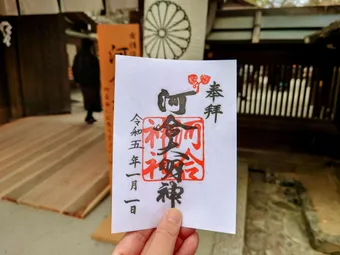 奉拝
河合大明神
河合神社
令和五年一月一日
河合